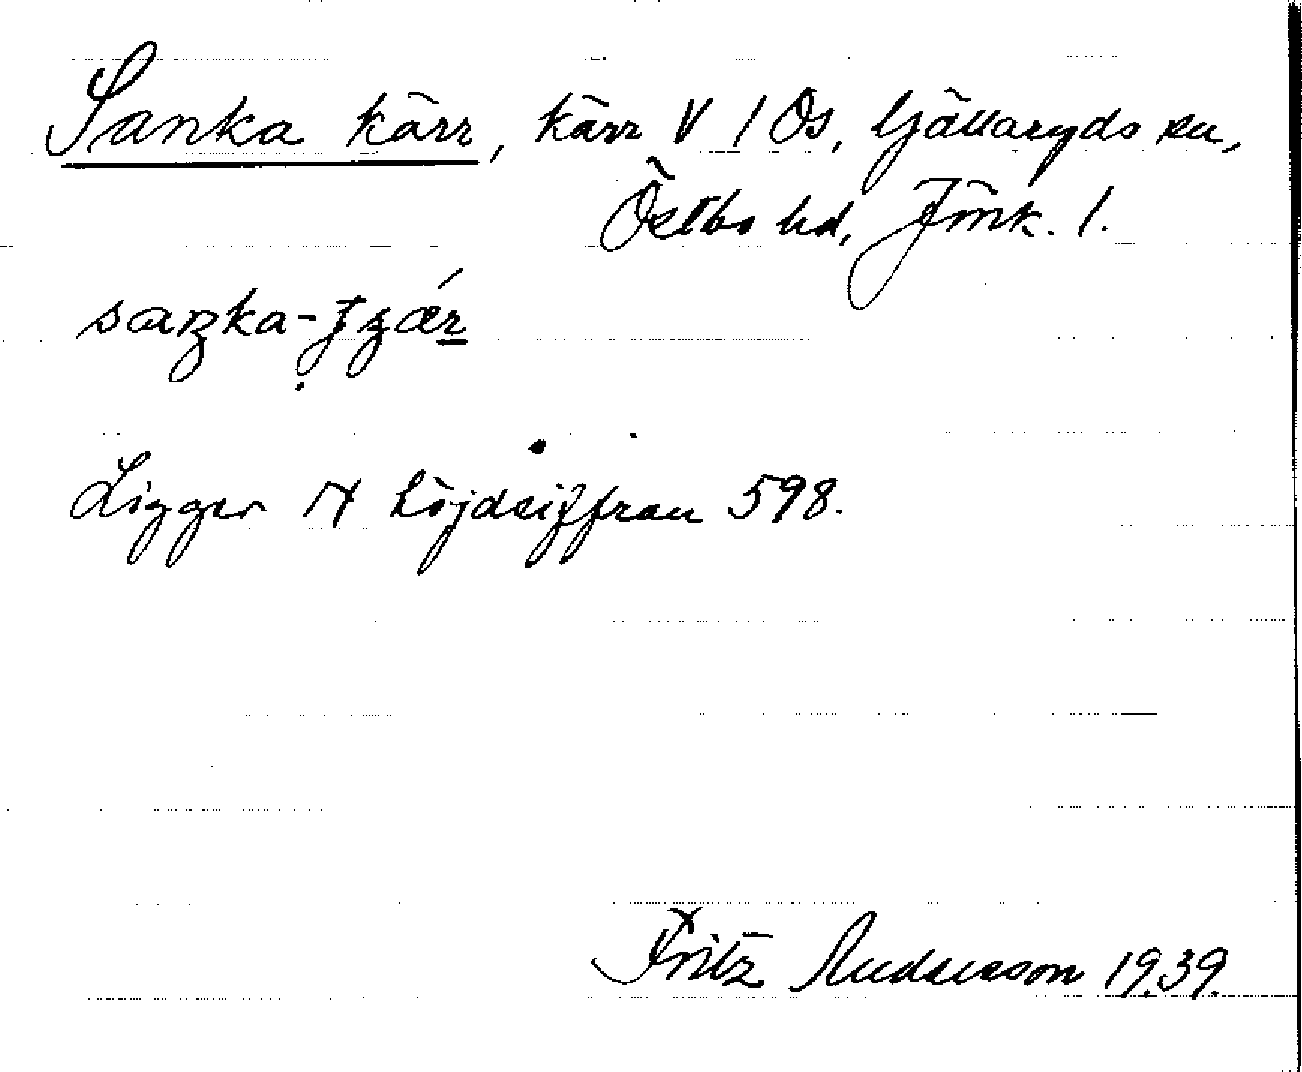 Sanka kärr, kärr V 1 Os, Gällaryds sn,
Östbo hd, Jönk. l.
Ligger N höjdsiffran 598.
Fritz Andersson 1939.